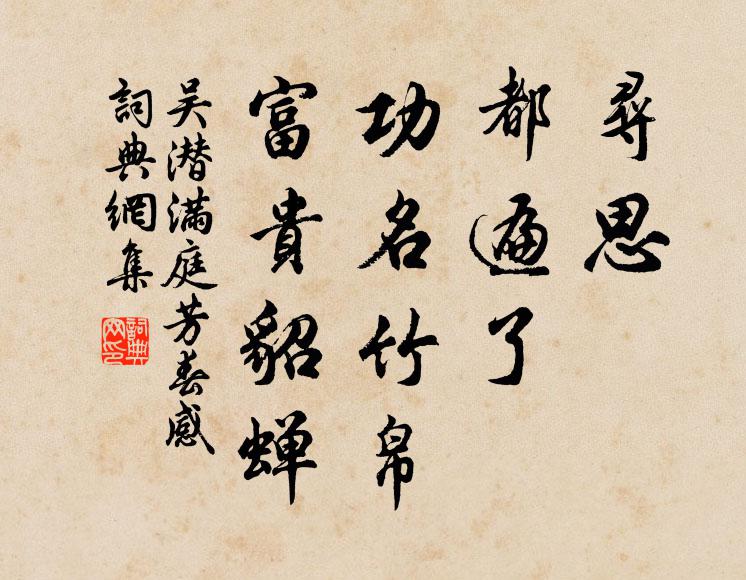 尋思
都遍了
功名竹帛
富貴貂蟬
吴潛滿庭芳春感
詞典網集
詞典網印